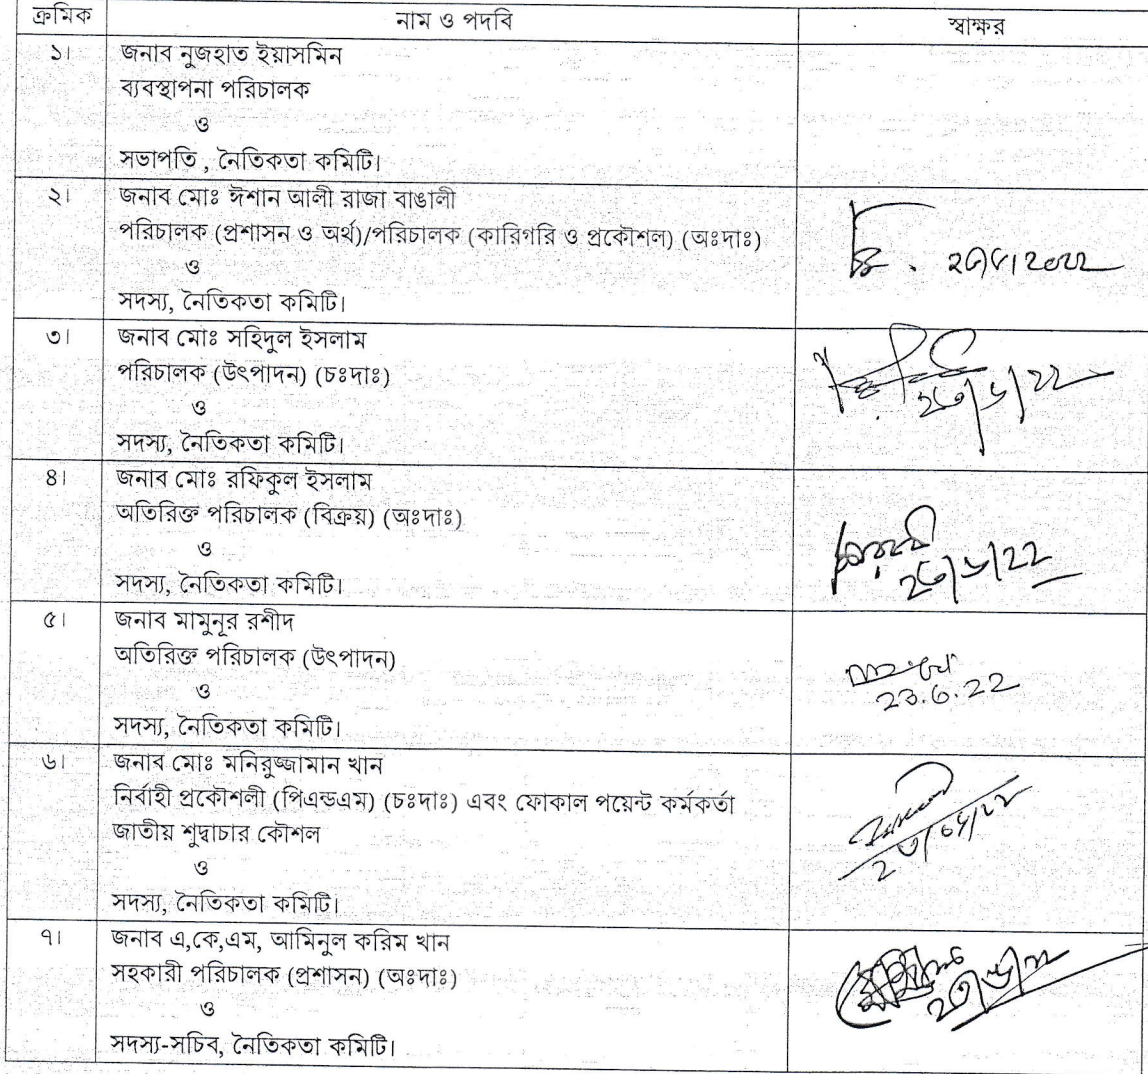 ক্রমিক নাম ও পদবি স্বাক্ষর
১। জনাব নুজহাত ইয়াসমিন
ব্যবস্থাপনা পরিচালক
ও
সভাপতি , নৈতিকতা কমিটি।
২। জনাব মোঃ ঈশান আলী রাজা বাঙালী
পরিচালক (প্রশাসন ও অর্থ)/পরিচালক (কারিগরি ও প্রকৌশল) (অঃদাঃ)
ও
সদস্য, নৈতিকতা কমিটি।
৩। জনাব মোঃ সহিদুল ইসলাম
পরিচালক (উৎপাদন) (চঃদাঃ)
ও
২৩/৬/২২
সদস্য, নৈতিকতা কমিটি।
৪। জনাব মোঃ রফিকুল ইসলাম
অতিরিক্ত পরিচালক (বিক্রয়) (অঃদাঃ)
ও
২৩/৬/২২
সদস্য, নৈতিকতা কমিটি।
৫। জনাব মামুনূর রশীদ
অতিরিক্ত পরিচালক (উৎপাদন)
ও
23.6.22
সদস্য, নৈতিকতা কমিটি।
৬। জনাব মোঃ মনিরুজ্জামান খান
নির্বাহী প্রকৌশলী (পিএন্ডএম) (চঃদাঃ) এবং ফোকাল পয়েন্ট কর্মকর্তা
জাতীয় শুদ্বাচার কৌশল
ও
সদস্য, নৈতিকতা কমিটি।
৭। জনাব এ,কে,এম, আমিনুল করিম খান
সহকারী পরিচালক (প্রশাসন) (অঃদাঃ)
ও
সদস্য-সচিব, নৈতিকতা কমিটি।